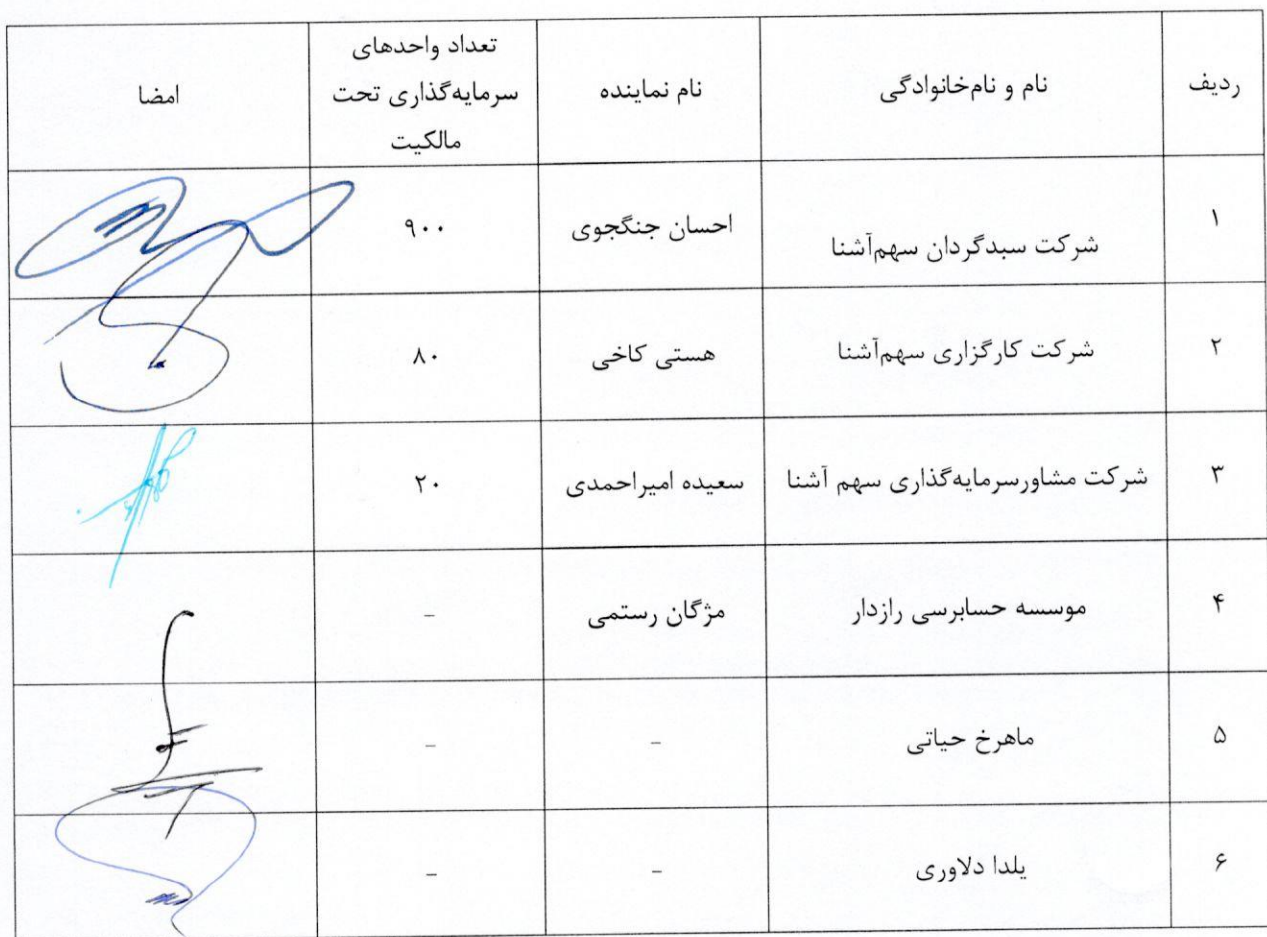 ردیف
نام و نام‌خانوادگی
نام نماینده
تعداد واحدهای
سرمایه‌گذاری تحت
مالکیت
امضا
۱
شرکت سبدگردان سهم‌آشنا
احسان جنگجوی
۹۰۰
۲
شرکت کارگزاری سهم‌آشنا
هستی کاخی
۸۰
۳
شرکت مشاورسرمایه‌گذاری سهم آشنا
سعیده امیراحمدی
۲۰
۴
موسسه حسابرسی رازدار
مژگان رستمی
–
۵
ماهرخ حیاتی
–
–
۶
یلدا دلاوری
–
–